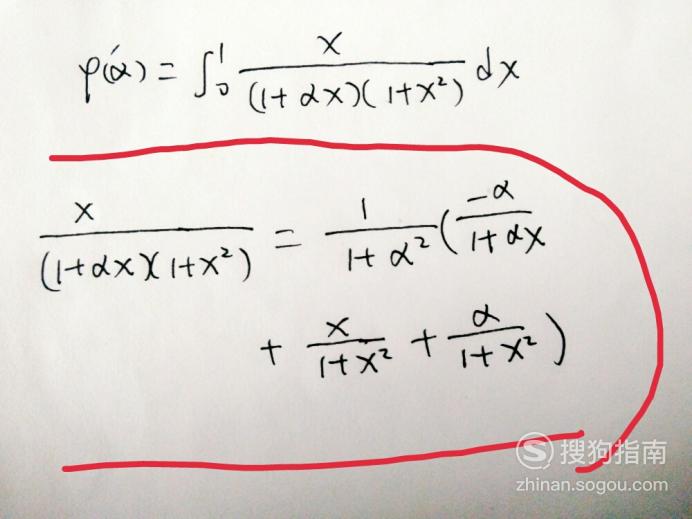 φ'(α) = ∫₀¹ x / ((1+αx)(1+x²)) dx
x / ((1+αx)(1+x²)) = 1 / (1+α²) ( -α / (1+αx)
+ x / (1+x²) + α / (1+x²) )
S 搜狗指南
zhinan.sogou.com